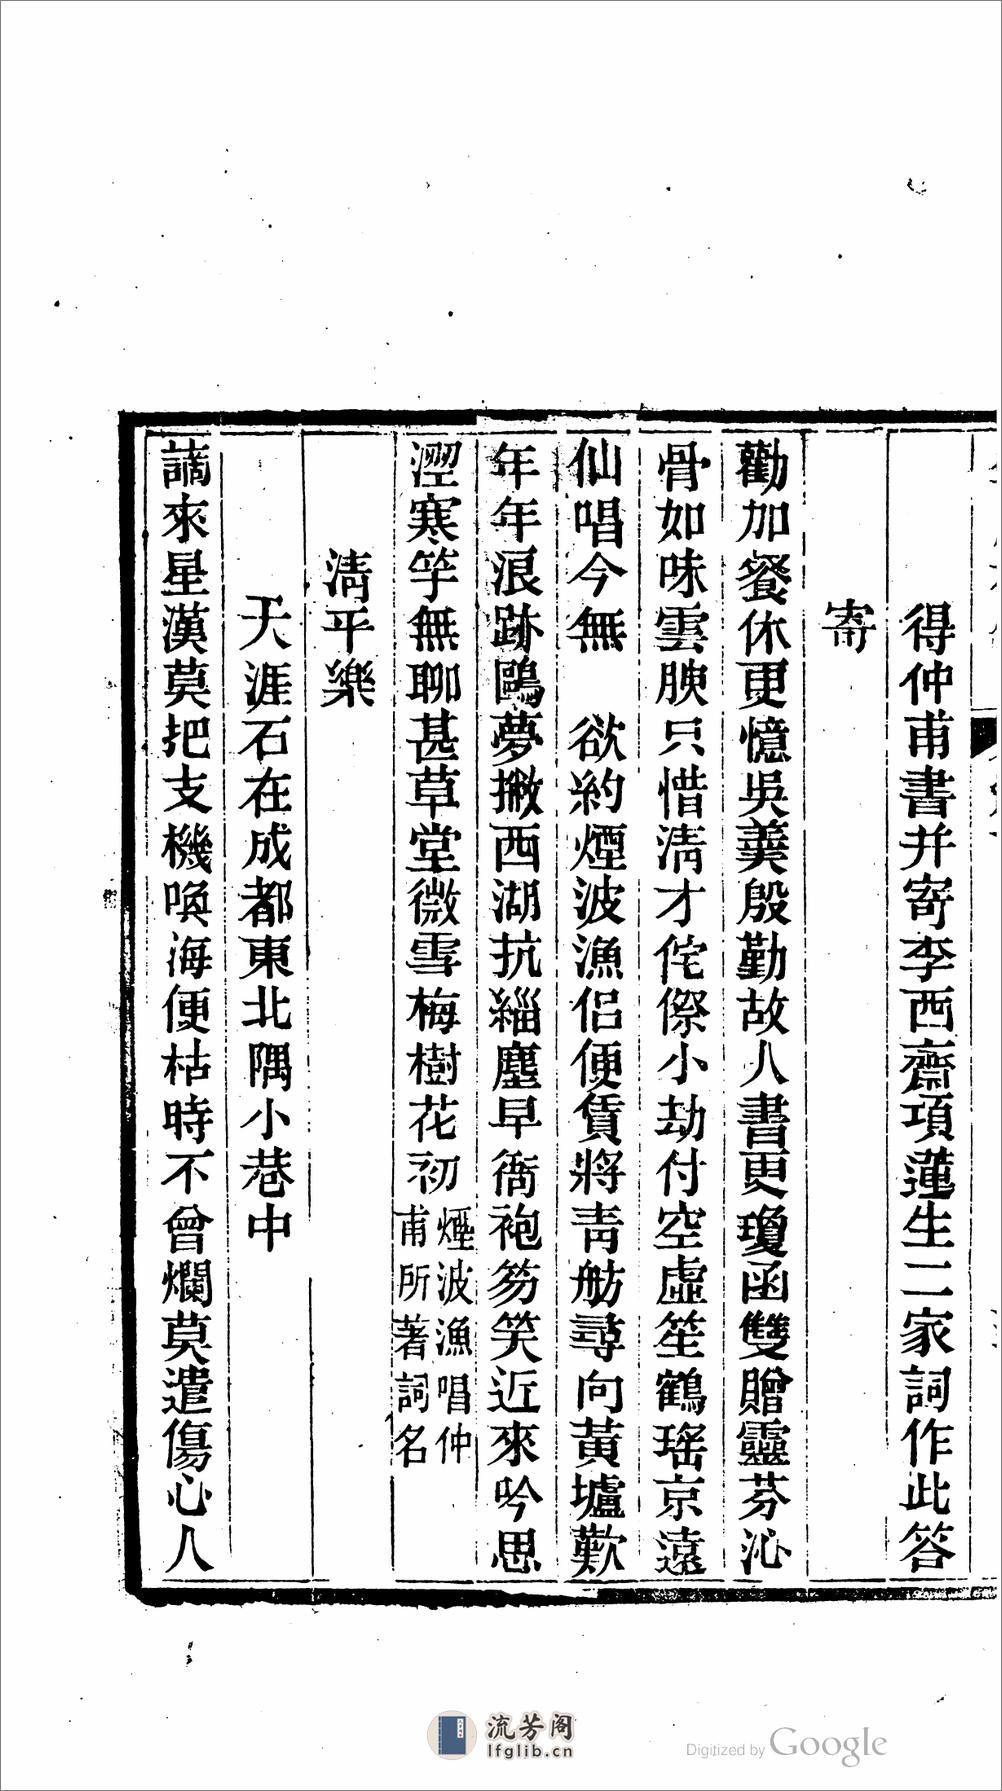 得仲甫書并寄李西齋項蓮生二家詞作此答
寄
勸加餐休更憶吳羹殷勤故人書更瓊函雙贈靈芬沁
骨如味雲腴只惜清才侘傺小劫付空虛笙鶴瑤京遠
仙唱今無　欲約煙波漁侶便賃將青舫尋向黃壚歎
年年浪跡鷗夢撇西湖抗緇塵早衙袍笏笑近來吟思
澀寒竽無聊甚草堂微雪梅樹花初煙波漁唱仲
甫所著詞名
清平樂
天涯石在成都東北隅小巷中
謫來星漢莫把支機喚海便枯時不曾爛莫遣傷心人
流芳阁
lfglib.cn
Digitized by Google